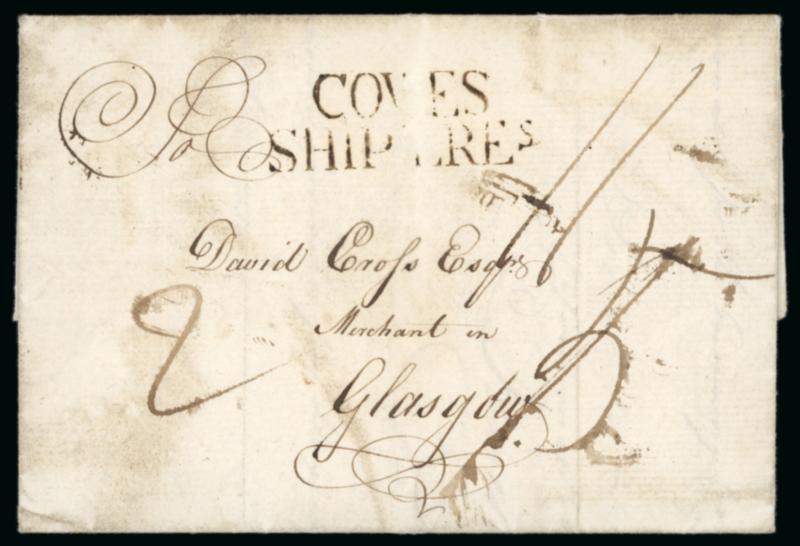 COWES
SHIP LREs
To
David Cross Esqr
Merchant in
Glasgow
2